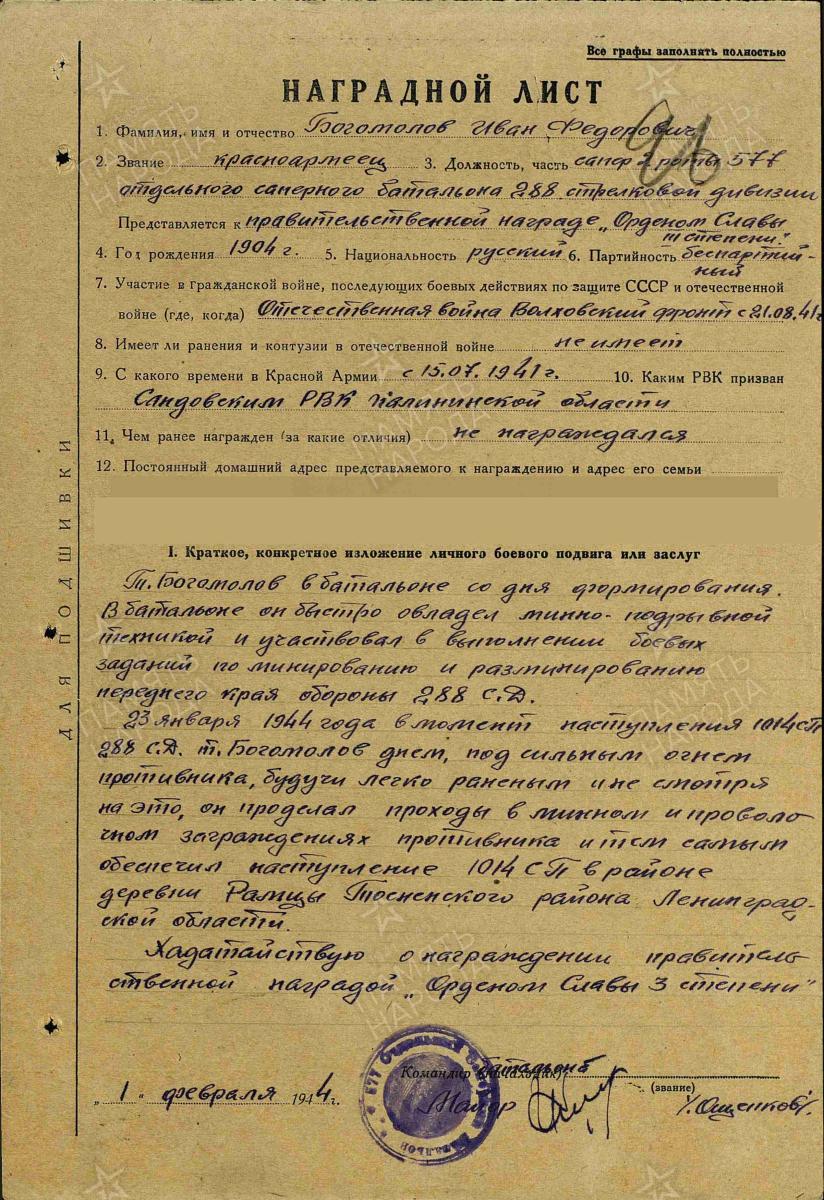 Все графы заполнять полностью
НАГРАДНОЙ ЛИСТ
1. Фамилия, имя и отчество Богомолов Иван Федорович
2. Звание красноармеец 3. Должность, часть сапер 2 роты 577
отдельного саперного батальона 288 стрелковой дивизии
Представляется к правительственной награде „Орденом Славы
III степени"
4. Год рождения 1904 г. 5. Национальность русский 6. Партийность беспартий-
ный
7. Участие в гражданской войне, последующих боевых действиях по защите СССР и отечественной
войне (где, когда) Отечественная война Волховский фронт с 21.08.41 г
8. Имеет ли ранения и контузии в отечественной войне не имеет
9. С какого времени в Красной Армии с 15.07.1941 г. 10. Каким РВК призван
Сандовским РВК Калининской области
11. Чем ранее награжден (за какие отличия) не награждался
12. Постоянный домашний адрес представляемого к награждению и адрес его семьи
ДЛЯ ПОДШИВКИ
I. Краткое, конкретное изложение личного боевого подвига или заслуг
Т. Богомолов в батальоне со дня формирования.
В батальоне он быстро овладел минно-подрывной
техникой и участвовал в выполнении боевых
заданий по минированию и разминированию
переднего края обороны 288 С.Д.
23 января 1944 года в момент наступления 1014 СП
288 С.Д. т. Богомолов днем, под сильным огнем
противника, будучи легко раненым и не смотря
на это, он проделал проходы в минном и проволо
чном заграждениях противника и тем самым
обеспечил наступление 1014 СП в районе
деревни Рамцы Тосненского района Ленинград-
ской области.
Хадатайствую о награждении правитель
ственной наградой „Орденом Славы 3 степени"
Командир (начальник) батальона
„1" февраля 1944 г. Майор (звание) /. Ощенков/.
ПАМЯТЬ НАРОДА